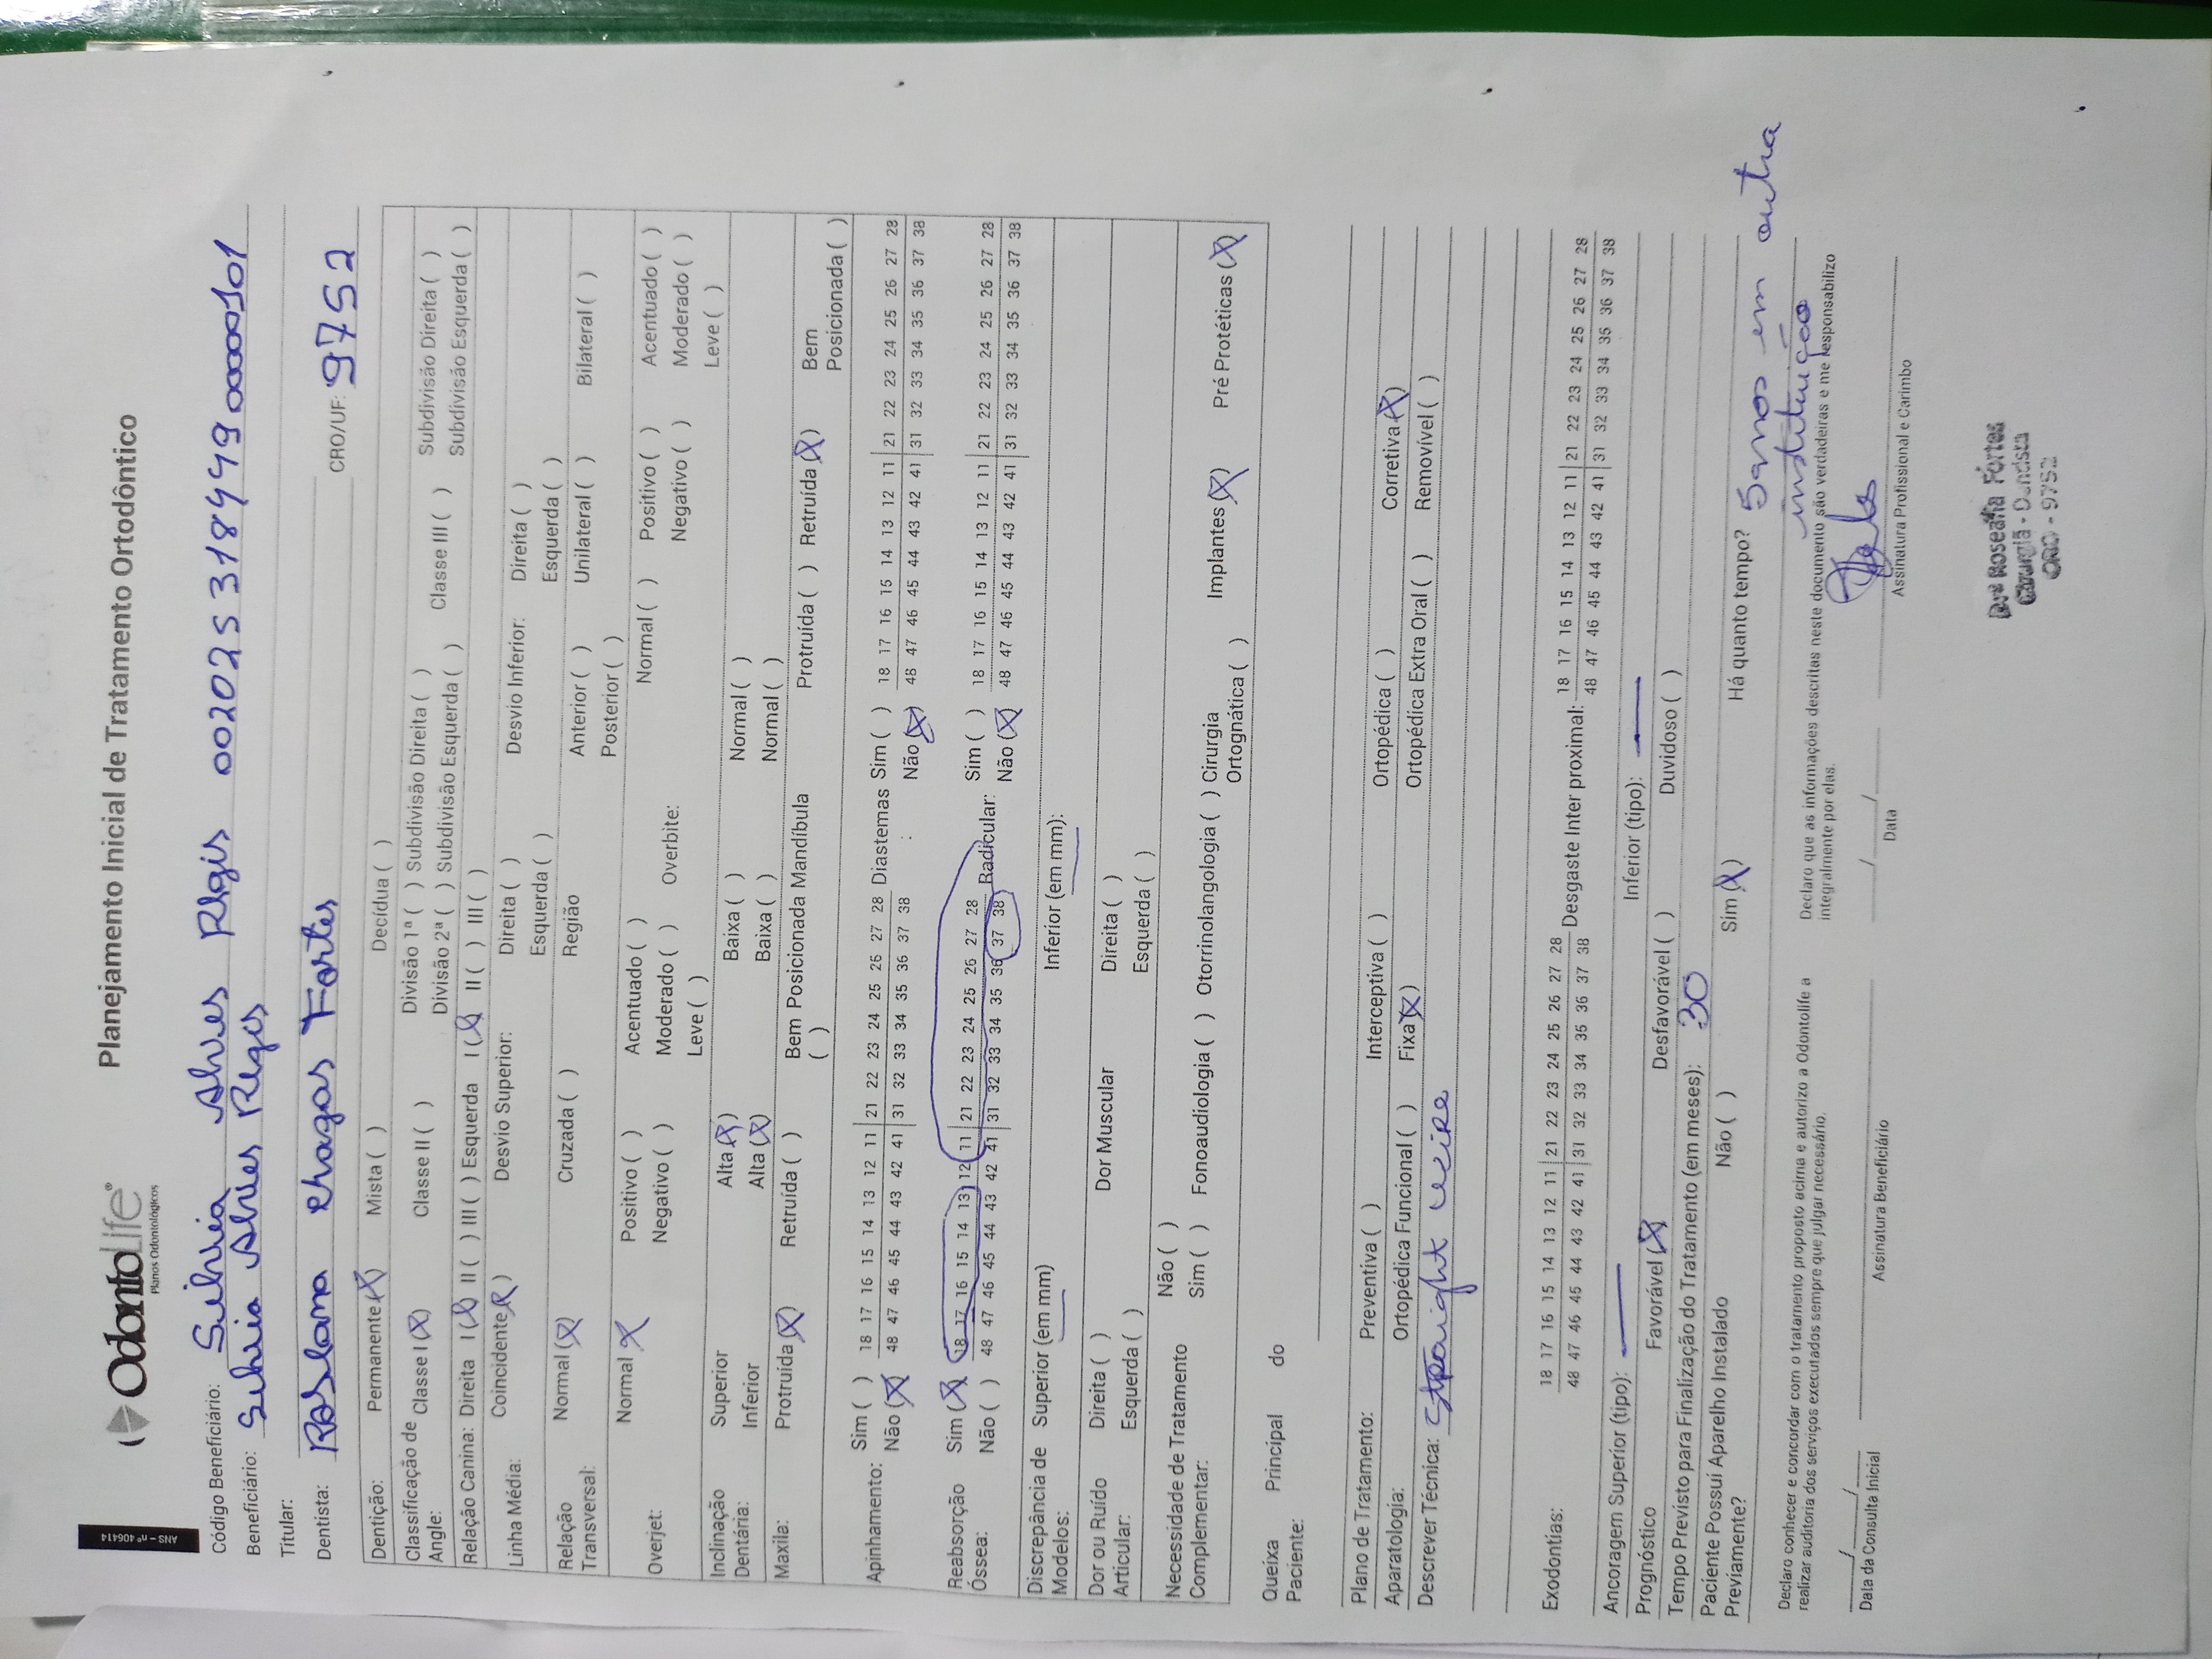 ANS - nº 406414
OdontoLife®
Planos Odontológicos
Planejamento Inicial de Tratamento Ortodôntico
Código Beneficiário: Silvia Alves Régis 00202531849900000101
Beneficiário: Silvia Alves Regis
Titular:
Dentista: Roseana Chagas Fortes CRO/UF: 9752
Dentição: Permanente (X) Mista ( ) Decídua ( )
Classificação de Angle: Classe I (X) Classe II ( ) Divisão 1ª ( ) Subdivisão Direita ( ) Classe III ( ) Subdivisão Direita ( )
Divisão 2ª ( ) Subdivisão Esquerda ( ) Subdivisão Esquerda ( )
Relação Canina: Direita I (X) II ( ) III ( ) Esquerda I (X) II ( ) III ( )
Linha Média: Coincidente (X) Desvio Superior: Direita ( ) Desvio Inferior: Direita ( )
Esquerda ( ) Esquerda ( )
Relação Transversal: Normal (X) Cruzada ( ) Região Anterior ( ) Unilateral ( ) Bilateral ( )
Posterior ( )
Overjet: Normal X Positivo ( ) Acentuado ( ) Overbite: Normal ( ) Positivo ( ) Acentuado ( )
Negativo ( ) Moderado ( ) Negativo ( ) Moderado ( )
Leve ( ) Leve ( )
Inclinação Dentária: Superior Alta (X) Baixa ( ) Normal ( )
Inferior Alta (X) Baixa ( ) Normal ( )
Maxila: Protruída (X) Retruída ( ) Bem Posicionada ( ) Mandíbula Protruída ( ) Retruída (X) Bem Posicionada ( )
Apinhamento: Sim ( ) 18 17 16 15 14 13 12 11 | 21 22 23 24 25 26 27 28 Diastemas : Sim ( ) 18 17 16 15 14 13 12 11 | 21 22 23 24 25 26 27 28
Não (X) 48 47 46 45 44 43 42 41 | 31 32 33 34 35 36 37 38 Não (X) 48 47 46 45 44 43 42 41 | 31 32 33 34 35 36 37 38
Reabsorção Óssea: Sim (X) 18 17 16 15 14 13 12 11 | 21 22 23 24 25 26 27 28 Radicular: Sim ( ) 18 17 16 15 14 13 12 11 | 21 22 23 24 25 26 27 28
Não ( ) 48 47 46 45 44 43 42 41 | 31 32 33 34 35 36 37 38 Não (X) 48 47 46 45 44 43 42 41 | 31 32 33 34 35 36 37 38
Discrepância de Modelos: Superior (em mm) Inferior (em mm):
Dor ou Ruído Articular: Direita ( ) Dor Muscular Direita ( )
Esquerda ( ) Esquerda ( )
Necessidade de Tratamento Complementar: Não ( )
Sim ( ) Fonoaudiologia ( ) Otorrinolangologia ( ) Cirurgia Ortognática ( ) Implantes (X) Pré Protéticas (X)
Queixa Principal do Paciente:
Plano de Tratamento: Preventiva ( ) Interceptiva ( ) Ortopédica ( ) Corretiva (X)
Aparatologia: Ortopédica Funcional ( ) Fixa (X) Ortopédica Extra Oral ( ) Removível ( )
Descrever Técnica: Straight wire
Exodontias: 18 17 16 15 14 13 12 11 | 21 22 23 24 25 26 27 28 Desgaste Inter proximal: 18 17 16 15 14 13 12 11 | 21 22 23 24 25 26 27 28
48 47 46 45 44 43 42 41 | 31 32 33 34 35 36 37 38 48 47 46 45 44 43 42 41 | 31 32 33 34 35 36 37 38
Ancoragem Superior (tipo): — Inferior (tipo): —
Prognóstico Favorável (X) Desfavorável ( ) Duvidoso ( )
Tempo Previsto para Finalização do Tratamento (em meses): 30
Paciente Possuí Aparelho Instalado Previamente? Não ( ) Sim (X) Há quanto tempo? 5 anos em outra
instituição
Declaro conhecer e concordar com o tratamento proposto acima e autorizo a Odontolife a
realizar auditoria dos serviços executados sempre que julgar necessário.
Declaro que as informações descritas neste documento são verdadeiras e me responsabilizo
integralmente por elas.
___/___/___
Data da Consulta Inicial
Assinatura Beneficiário
___/___/___
Data
Assinatura Profissional e Carimbo
Drª Roseana Fortes
Cirurgiã - Dentista
CRO - 9752